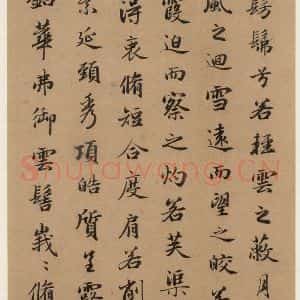 髣髴兮若輕雲之蔽月
風之迴雪遠而望之皎若
霞迫而察之灼若芙渠
得衷脩短合度肩若削
素延頸秀項皓質呈露
鉛華弗御雲髻峩〻脩
Shufawang.CN